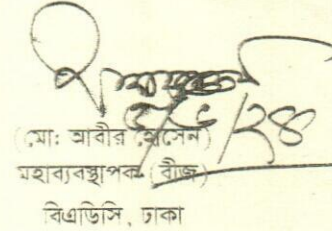 ৫/৬/২৪
(মো: আবীর হোসেন)
মহাব্যবস্থাপক (বীজ)
বিএডিসি, ঢাকা